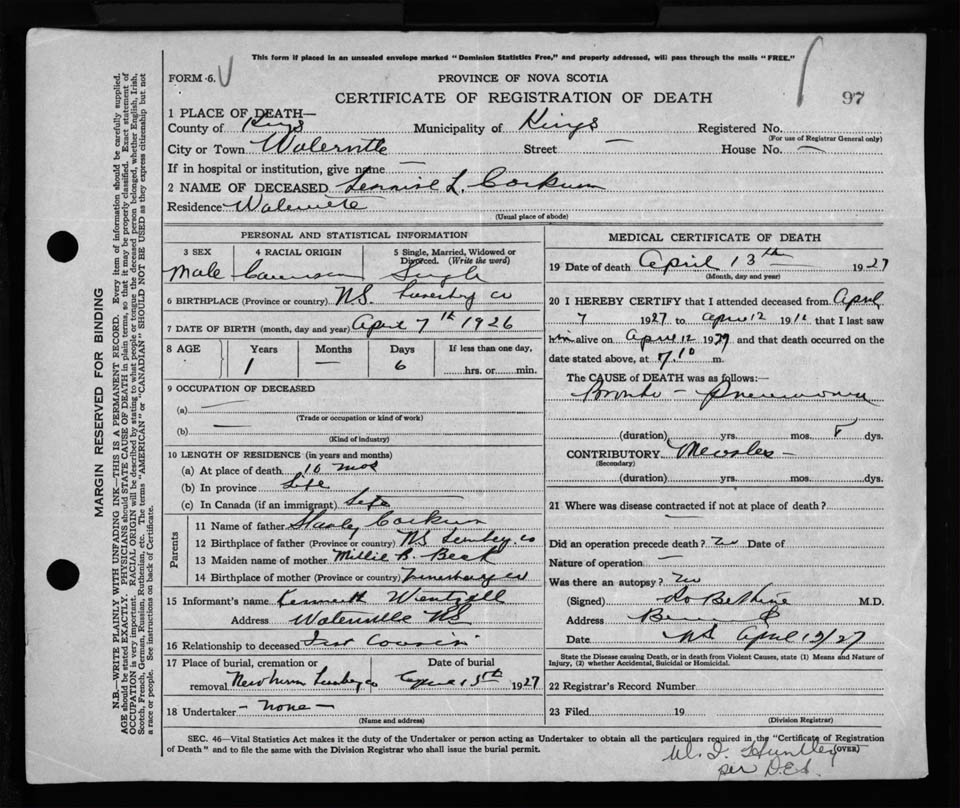 This form if placed in an unsealed envelope marked "Dominion Statistics Free," and properly addressed, will pass through the mails "FREE."
FORM 6. V
PROVINCE OF NOVA SCOTIA
CERTIFICATE OF REGISTRATION OF DEATH 97
1 PLACE OF DEATH—
County of Kings Municipality of Kings Registered No.
(For use of Registrar General only)
City or Town Street — House No. —
If in hospital or institution, give name —
2 NAME OF DECEASED L. Corkum
Residence
(Usual place of abode)
PERSONAL AND STATISTICAL INFORMATION
3 SEX 4 RACIAL ORIGIN 5 Single, Married, Widowed or Divorced. (Write the word)
Male Single
6 BIRTHPLACE (Province or country) N.S. Co
7 DATE OF BIRTH (month, day and year) April 7th 1926
8 AGE Years Months Days If less than one day,
1 — 6 hrs. or min.
9 OCCUPATION OF DECEASED
(a) —
(Trade or occupation or kind of work)
(b) —
(Kind of industry)
10 LENGTH OF RESIDENCE (in years and months)
(a) At place of death 10 mos
(b) In province Life
(c) In Canada (if an immigrant) Life
Parents
11 Name of father Stanley Corkum
12 Birthplace of father (Province or country) NS Co
13 Maiden name of mother Millie B. Beck
14 Birthplace of mother (Province or country) Co
15 Informant's name Kenneth Wentzell
Address Waterville NS
16 Relationship to deceased Cousin
17 Place of burial, cremation or removal Date of burial
Co April 15th 1927
18 Undertaker - none -
(Name and address)
MEDICAL CERTIFICATE OF DEATH
19 Date of death April 13th 1927
(Month, day and year)
20 I HEREBY CERTIFY that I attended deceased from April
7 1927 to April 12 19 that I last saw
him alive on April 12 19 and that death occurred on the
date stated above, at 7.10 m.
The CAUSE of DEATH was as follows:—
Broncho - Pneumonia
(duration) yrs. mos. dys.
CONTRIBUTORY Measles -
(Secondary)
(duration) yrs. mos. dys.
21 Where was disease contracted if not at place of death?
Did an operation precede death? no Date of
Nature of operation —
Was there an autopsy? no
(Signed) M.D.
Address
Date NS April /27
State the Disease causing Death, or in death from Violent Causes, state (1) Means and Nature of
Injury, (2) whether Accidental, Suicidal or Homicidal.
22 Registrar's Record Number
23 Filed 19
(Division Registrar)
SEC. 46—Vital Statistics Act makes it the duty of the Undertaker or person acting as Undertaker to obtain all the particulars required in the "Certificate of Registration
of Death" and to file the same with the Division Registrar who shall issue the burial permit.
(OVER)
Huntley
per D.E.S.
MARGIN RESERVED FOR BINDING
N.B.—WRITE PLAINLY WITH UNFADING INK—THIS IS A PERMANENT RECORD. Every item of information should be carefully supplied.
AGE should be stated EXACTLY. PHYSICIANS should STATE CAUSE OF DEATH in plain terms, so that it may be properly classified. Exact statement of
OCCUPATION is very important. RACIAL ORIGIN will be described by stating to what people or tongue the deceased person belonged, whether English, Irish,
Scotch, French, German, Russian, Ruthenian, etc. The terms "AMERICAN" or "CANADIAN" SHOULD NOT BE USED as they express citizenship but not
a race or people. See instructions on back of Certificate.